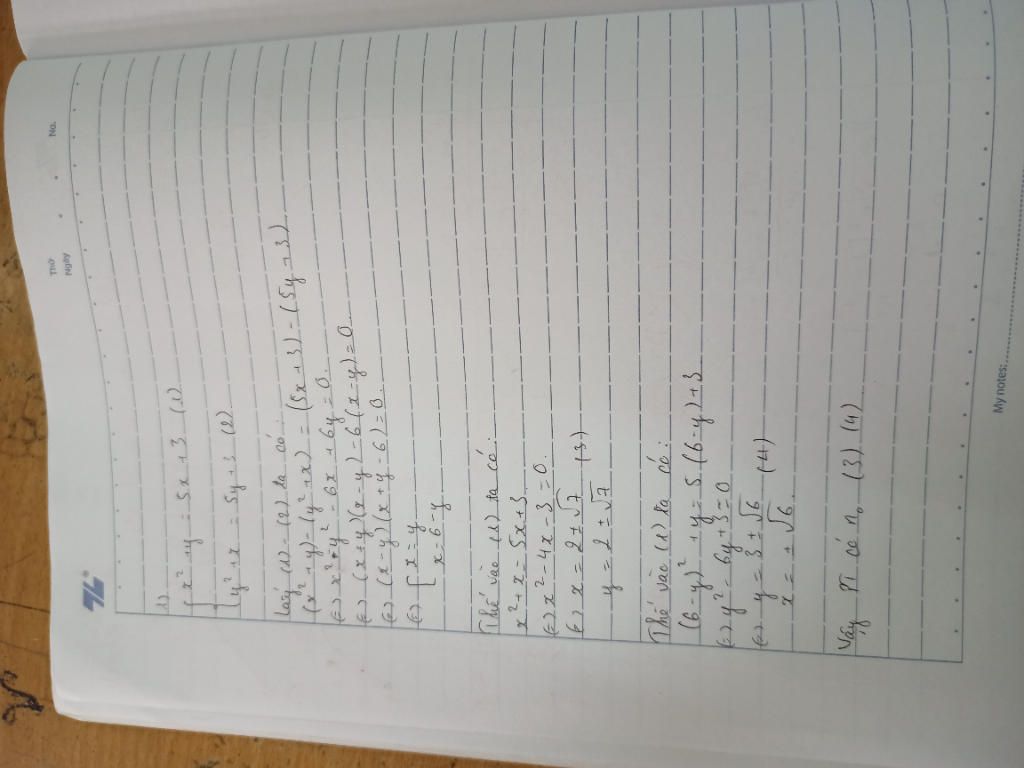 Thứ
Ngày
No.
1)
{ x² + y = 5x + 3 (1)
{ y² + x = 5y + 3 (2)
Lấy (1) - (2) ta có:
(x² + y) - (y² + x) = (5x + 3) - (5y + 3)
(=) x² - y² - 6x + 6y = 0.
(=) (x + y)(x - y) - 6(x - y) = 0.
(=) (x - y)(x + y - 6) = 0.
(=) [ x = y
[ x = 6 - y
Thế vào (1) ta có:
x² + x = 5x + 3
(=) x² - 4x - 3 = 0.
(=) x = 2 ± √7 (3)
y = 2 ± √7
Thế vào (1) ta có:
(6 - y)² + y = 5(6 - y) + 3
(=) y² - 6y + 3 = 0
(=) y = 3 ± √6 (4)
x = ± √6
Vậy PT có n₀ (3) (4)
My notes: